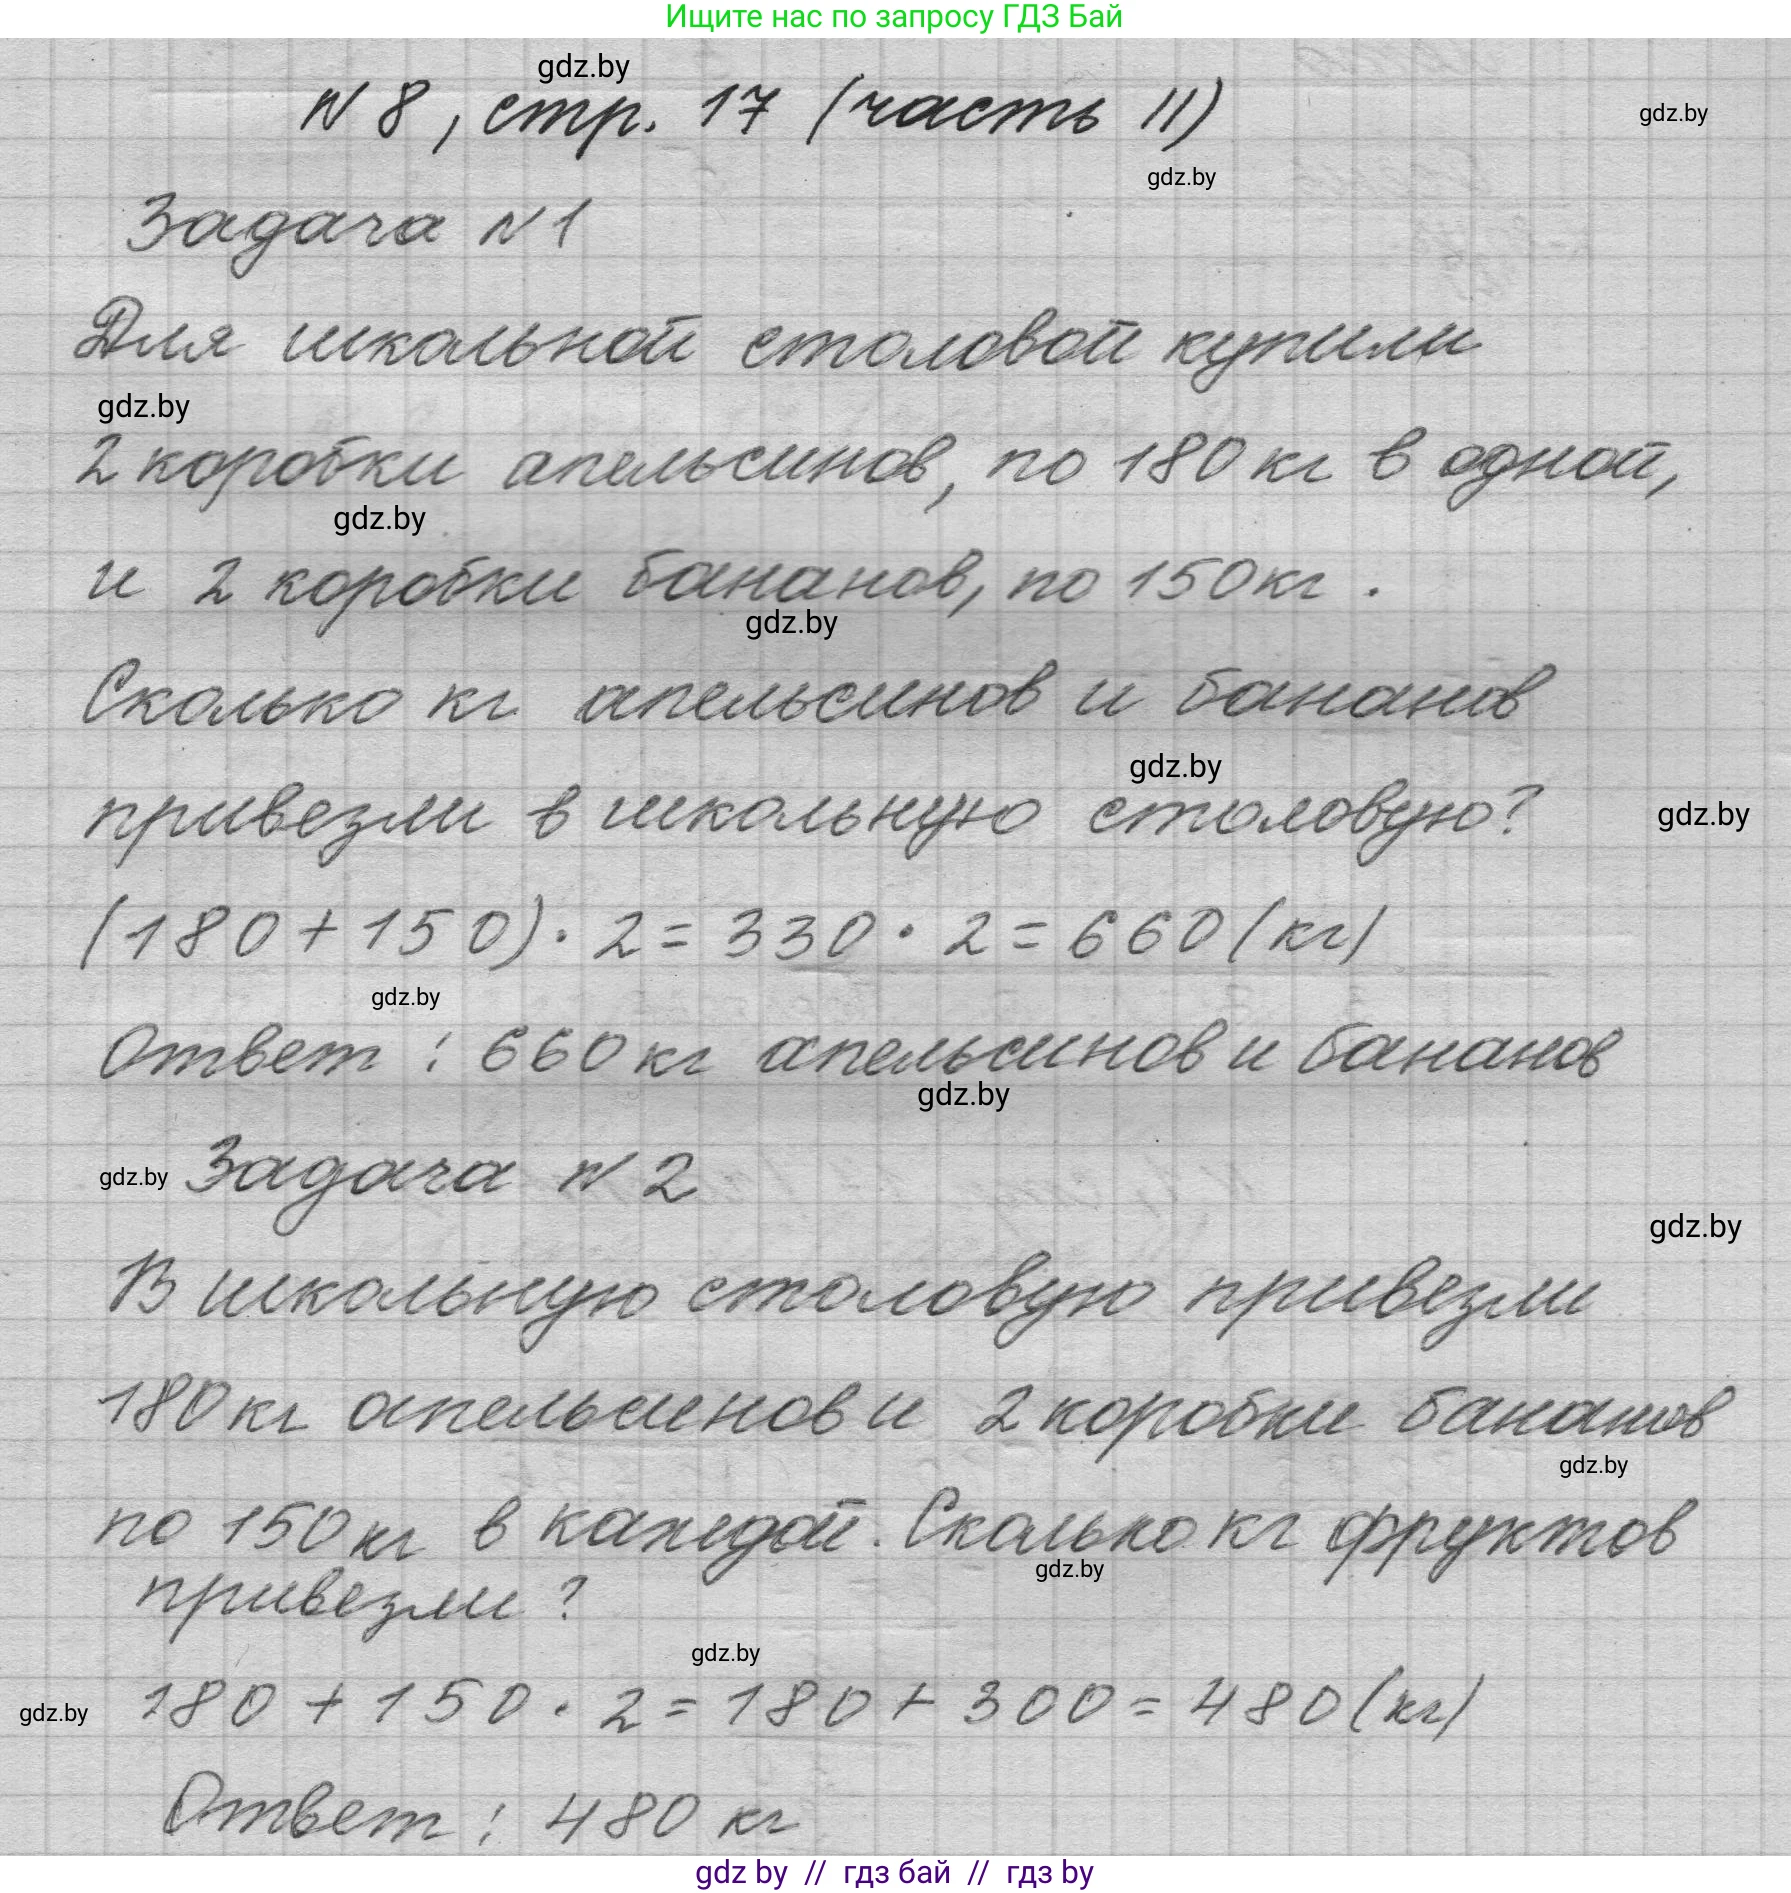 Ищите нас по запросу ГДЗ Бай
gdz.by
N 8, стр. 17 (часть II)
gdz.by
gdz.by
Задача N 1
Для школьной столовой купили
gdz.by
2 коробки апельсинов, по 180 кг в одной,
gdz.by
и 2 коробки бананов, по 150 кг.
gdz.by
Сколько кг апельсинов и бананов
gdz.by
привезли в школьную столовую?
gdz.by
(180 + 150) · 2 = 330 · 2 = 660 (кг)
gdz.by
Ответ: 660 кг апельсинов и бананов
gdz.by
gdz.by
Задача N 2
gdz.by
В школьную столовую привезли
180 кг апельсинов и 2 коробки бананов
gdz.by
по 150 кг в каждой. Сколько кг фруктов
gdz.by
привезли?
gdz.by
gdz.by
180 + 150 · 2 = 180 + 300 = 480 (кг)
Ответ: 480 кг
gdz by // гдз бай // гдз by